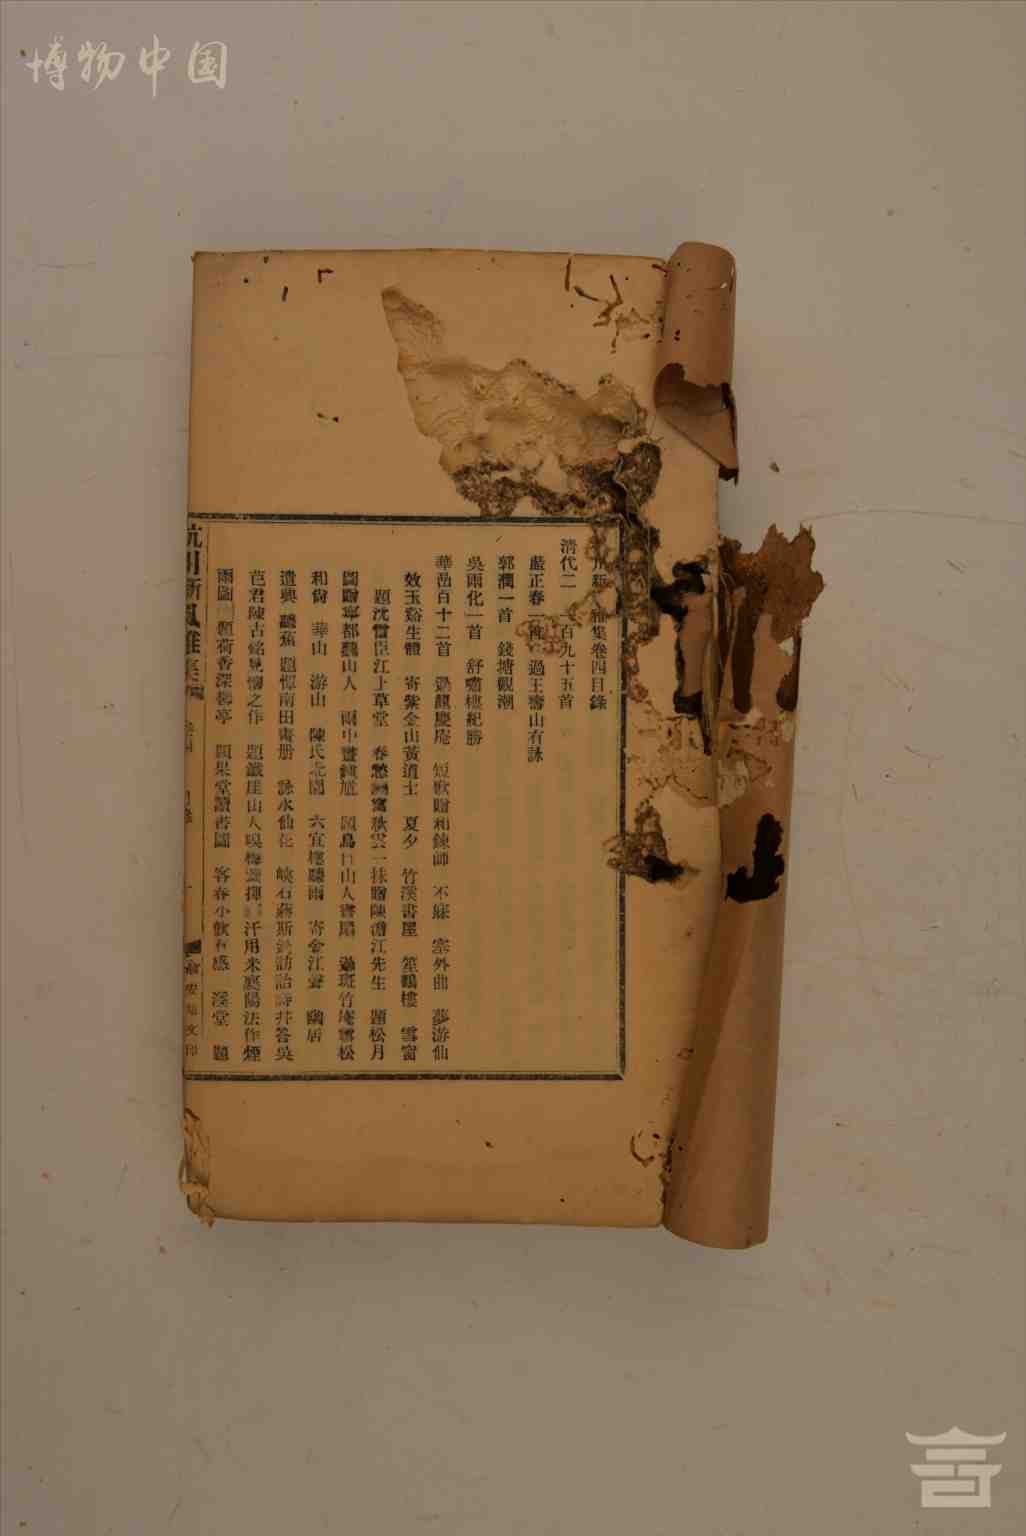 博物中国
新
雅集卷四目錄
清代二 一百九十五首
嚴正春一首 過王壽山有詠
郭潤一首 錢塘觀潮
吳雨化一首 舒嘯樓紀勝
華嵒百十二首 慶庵 短歌贈和鍊師 不寐 塞外曲 夢游仙
效玉谿生體 寄紫金山黃道士 夏夕 竹溪書屋 笙鶴樓 雪窗
題沈雪臣江上草堂 春愁 秋雲一抹贈陳澹江先生 題松月
圖贈寧都魏山人 雨中 題烏目山人書扇 過斑竹庵 松
和尙 華山 游山 陳氏北園 六宜樓聽雨 寄金江聲 幽居
遣興 聽蕉 題惲南田畫册 詠水仙花 峽石蔣 訪詒 并答吳
芑君陳古銘見懷之作 題鐵崖山人嗅梅圖 汗用米襄陽法作煙
雨圖 題荷香深處亭 題果堂讀書圖 客春小飲有感 溪堂 題
杭川新風雅集
卷四 目錄 一